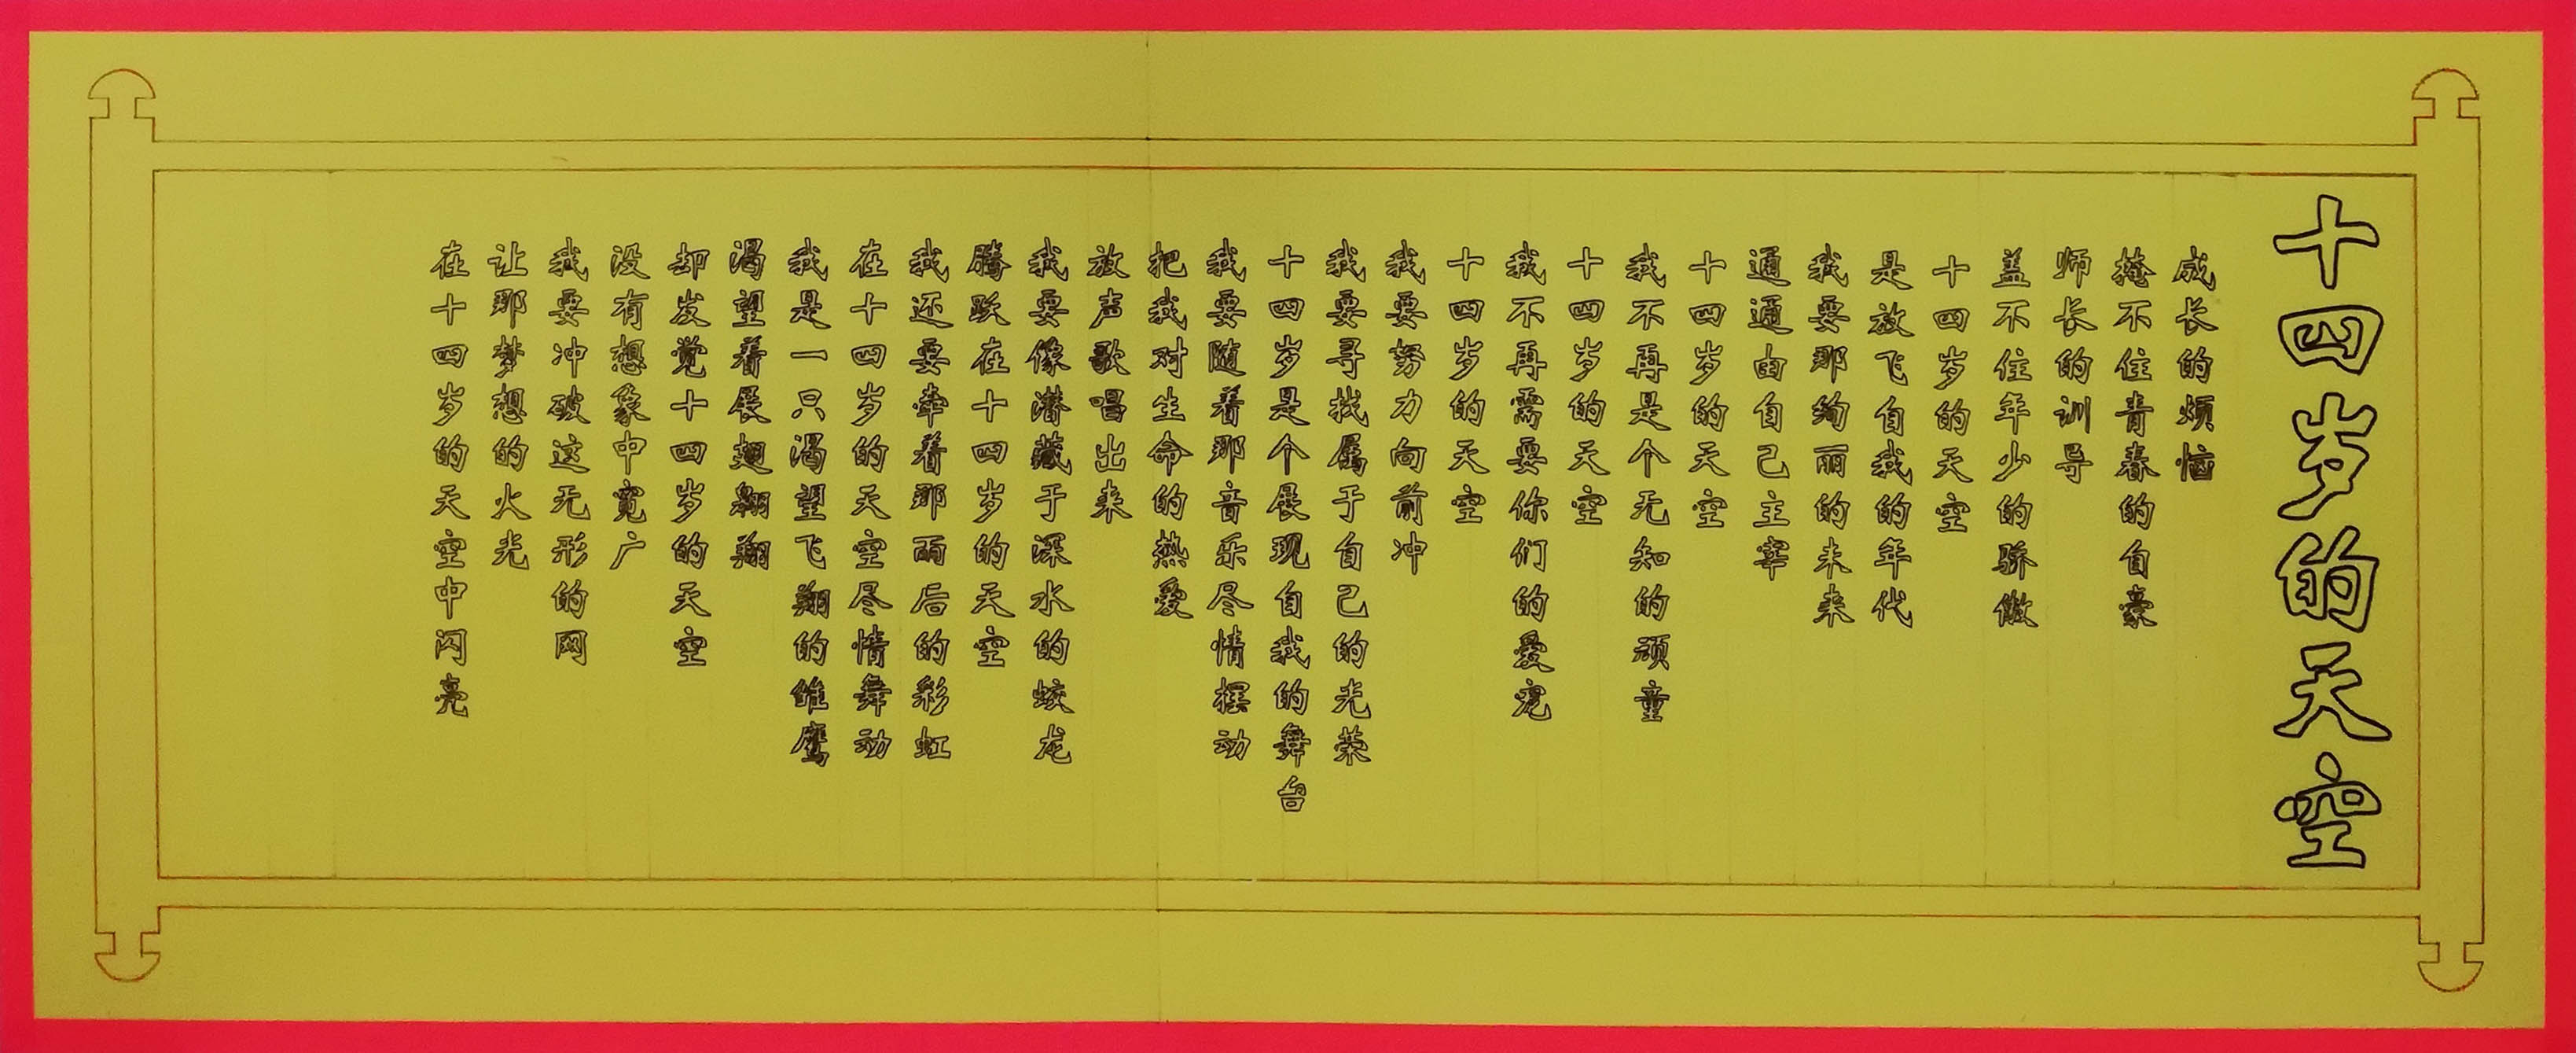 十四岁的天空
成长的烦恼
掩不住青春的自豪
师长的训导
盖不住年少的骄傲
十四岁的天空
是放飞自我的年代
我要那绚丽的未来
通通由自己主宰
十四岁的天空
我不再是个无知的顽童
十四岁的天空
我不再需要你们的爱宠
十四岁的天空
我要努力向前冲
我要寻找属于自己的光荣
十四岁是个展现自我的舞台
我要随着那音乐尽情摆动
把我对生命的热爱
放声歌唱出来
我要像潜藏于深水的蛟龙
腾跃在十四岁的天空
我还要牵着那雨后的彩虹
在十四岁的天空尽情舞动
我是一只渴望飞翔的雏鹰
渴望着展翅翱翔
却发觉十四岁的天空
没有想象中宽广
我要冲破这无形的网
让那梦想的火光
在十四岁的天空中闪亮